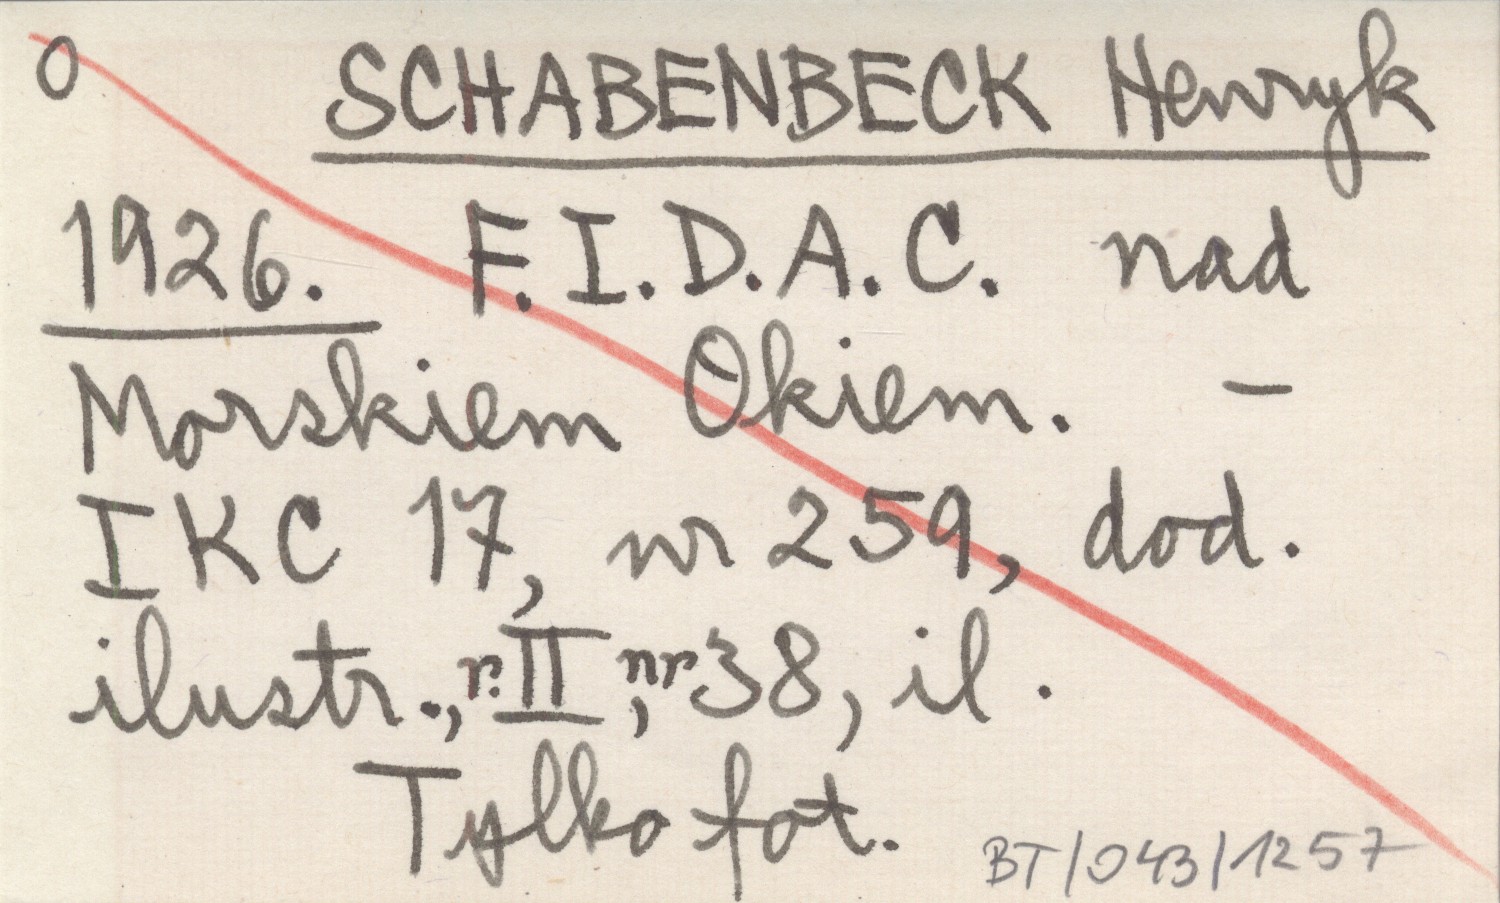 O SCHABENBECK Henryk
1926. F.I.D.A.C. nad
Morskiem Okiem. –
IKC 17, nr 259, dod.
ilustr., r. II, nr 38, il.
Tylko fot.
BT/043/1257